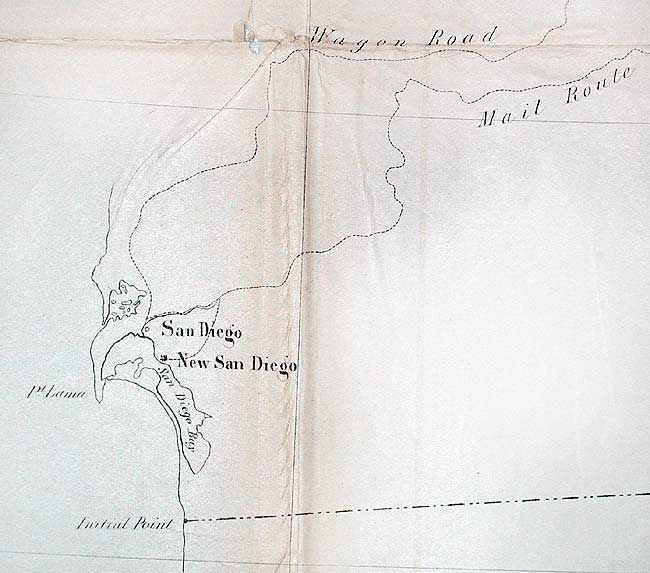 Wagon Road
Mail Route
San Diego
New San Diego
San Diego Bay
Pt. Lama
Initial Point